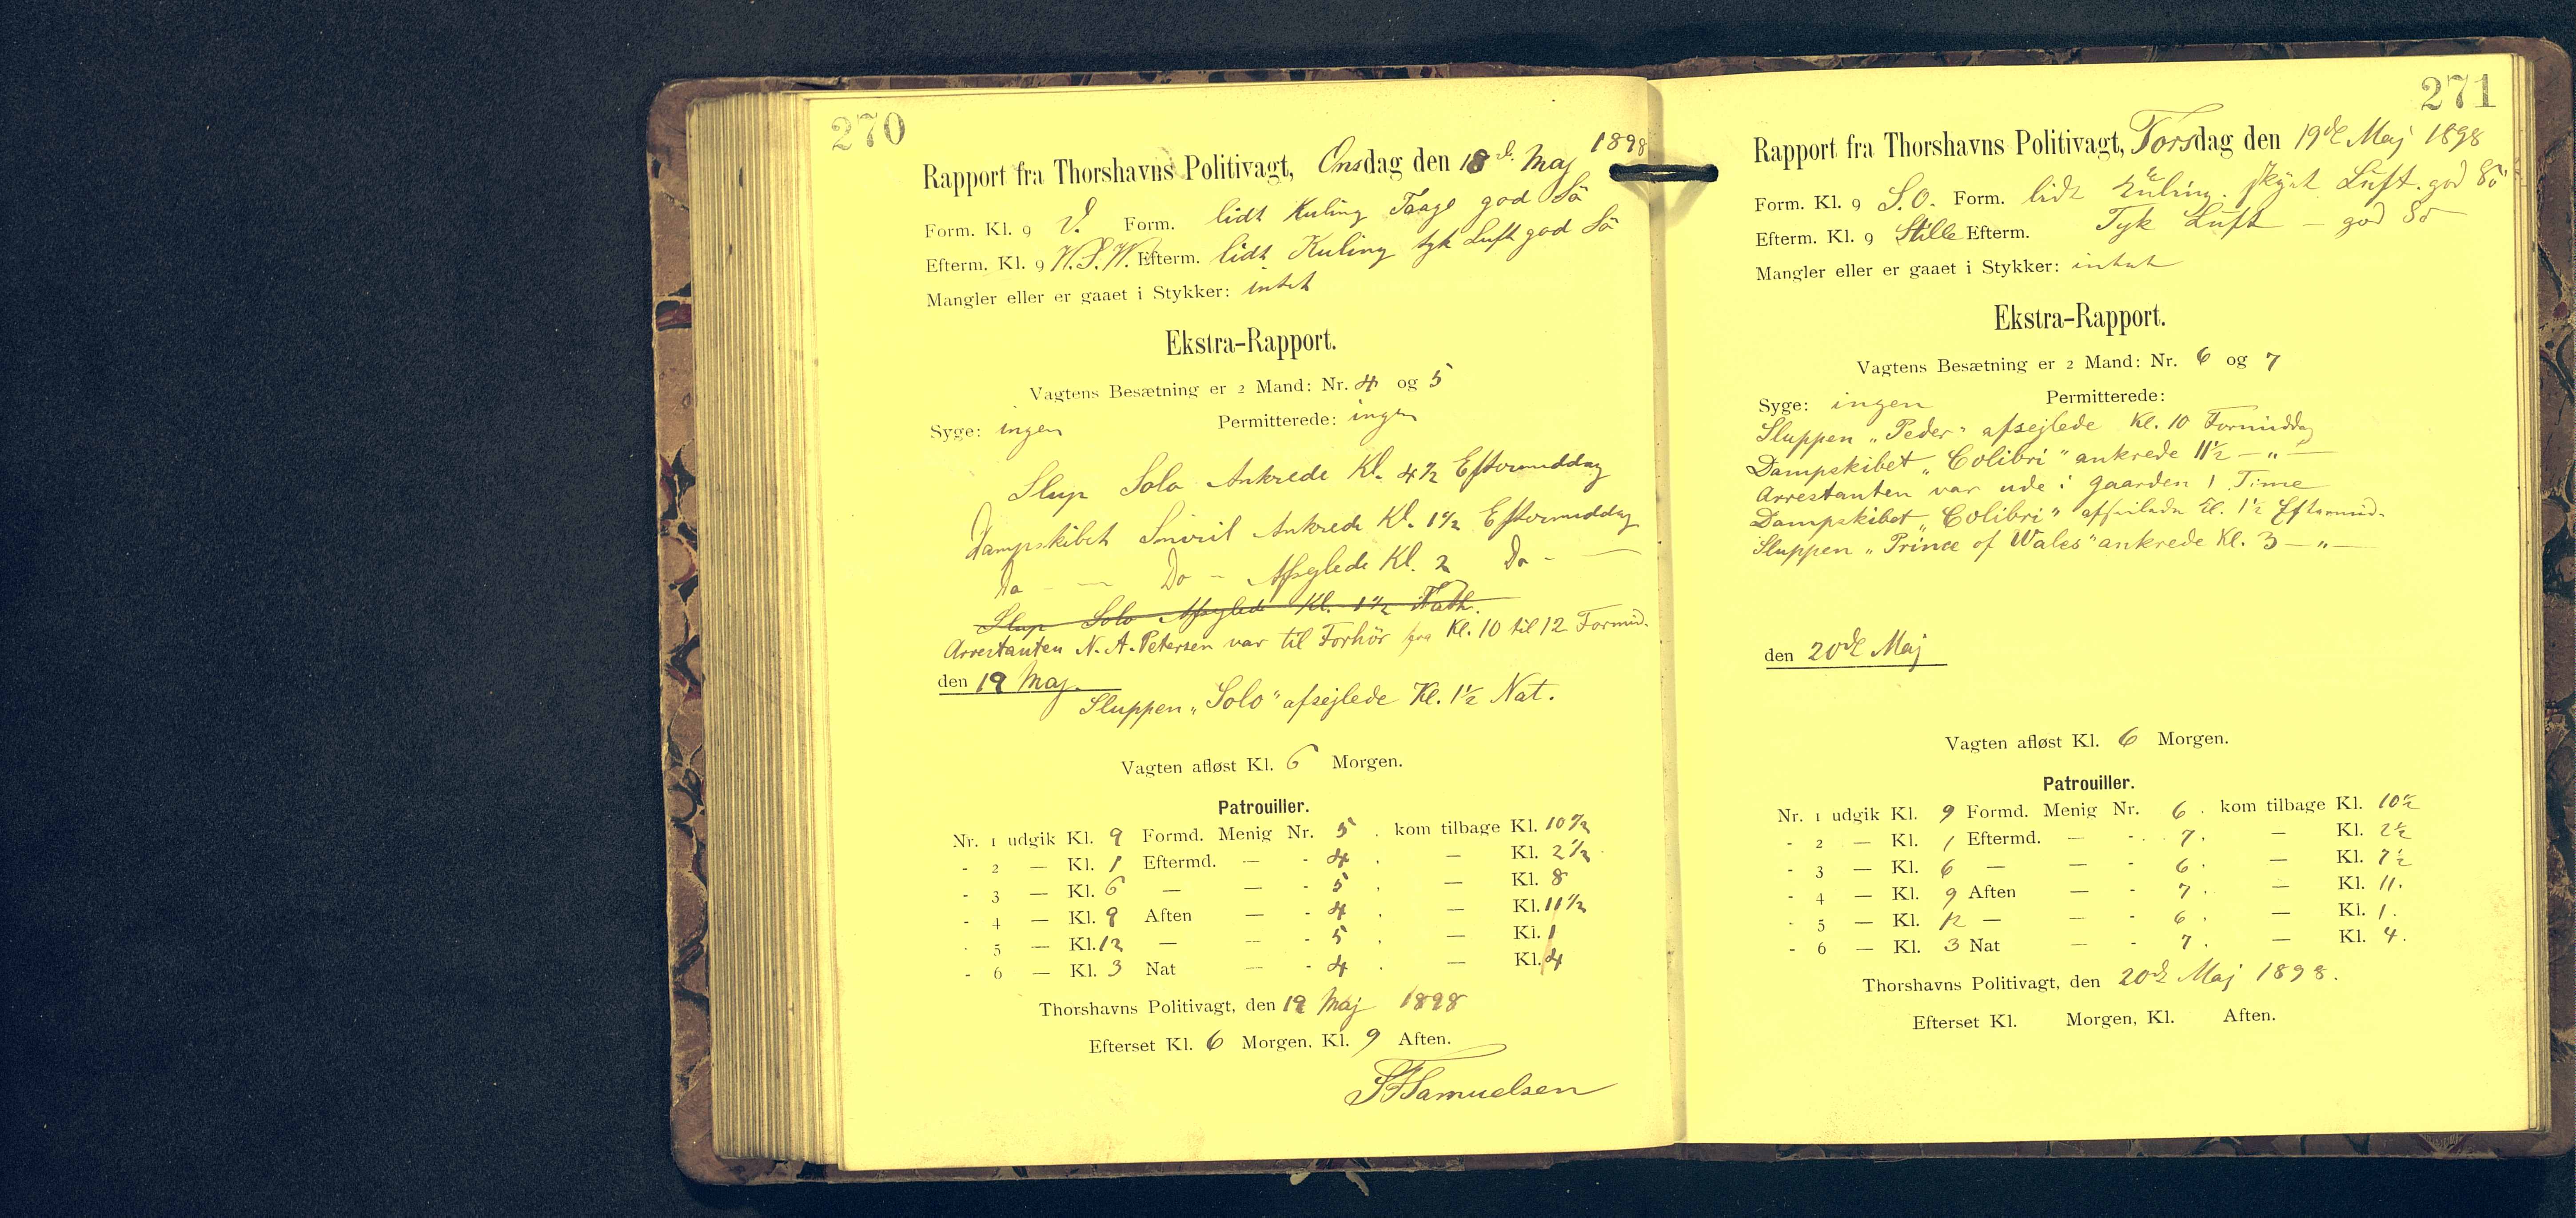 270
Rapport fra Thorshavns Politivagt, Onsdag den 18d. Maj 1898
Form. Kl. 9 V. Form. lidt Kuling Taage god Sö
Efterm. Kl. 9 V.S.V. Efterm. lidt Kuling tyk Luft god Sö
Mangler eller er gaaet i Stykker: intet
Ekstra-Rapport.
Vagtens Besætning er 2 Mand: Nr. 4 og 5
Syge: ingen Permitterede: ingen
Slup Solo Ankrede Kl. 4 1/2 Eftermiddag
Dampskibet Smiril Ankrede Kl. 1 1/2 Eftermiddag
Do — Do – Afseglede Kl. 2 Do -
Slup Solo Afseglede Kl. 1 1/2 Nath.
Arrestanten N. A. Petersen var til Forhör fra Kl. 10 til 12 Formid.
den 19 Maj.
Sluppen „Solo" afsejlede Kl. 1 1/2 Nat.
Vagten afløst Kl. 6 Morgen.
Patrouiller.
Nr. 1 udgik Kl. 9 Formd. Menig Nr. 5 . kom tilbage Kl. 10 1/2
- 2 — Kl. 1 Eftermd. — - 4 . — Kl. 2 1/2
- 3 — Kl. 6 — — - 5 . — Kl. 8
- 4 — Kl. 9 Aften — - 4 . — Kl. 11 1/2
- 5 — Kl. 12 — — - 5 — Kl. 1
- 6 — Kl. 3 Nat — - 4 . — Kl. 4
Thorshavns Politivagt, den 19 Maj 1898
Efterset Kl. 6 Morgen, Kl. 9 Aften.
SFSamuelsen
271
Rapport fra Thorshavns Politivagt, Torsdag den 19de Maj 1898
Form. Kl. 9 S.O. Form. lidt Kuling. skyet Luft. god Sö
Efterm. Kl. 9 Stille Efterm. Tyk Luft — god Sö
Mangler eller er gaaet i Stykker: intet
Ekstra-Rapport.
Vagtens Besætning er 2 Mand: Nr. 6 og 7
Syge: ingen Permitterede:
Sluppen „Peder" afsejlede Kl. 10 Formiddag
Dampskibet „Colibri" ankrede 11 1/2 — „ —
Arrestanten var ude i Gaarden 1 Time
Dampskibet „Colibri" afseilede Kl. 1 1/2 Eftermid.
Sluppen „Prince of Wales" ankrede Kl. 3 — „ —
den 20de Maj
Vagten afløst Kl. 6 Morgen.
Patrouiller.
Nr. 1 udgik Kl. 9 Formd. Menig Nr. 6 . kom tilbage Kl. 10 1/2
- 2 — Kl. 1 Eftermd. — - 7 . — Kl. 2 1/2
- 3 — Kl. 6 — — - 6 . — Kl. 7 1/2
- 4 — Kl. 9 Aften — - 7 . — Kl. 11.
- 5 — Kl. 12 — — - 6 . — Kl. 1.
- 6 — Kl. 3 Nat — - 7 . — Kl. 4.
Thorshavns Politivagt, den 20de Maj 1898.
Efterset Kl. Morgen, Kl. Aften.